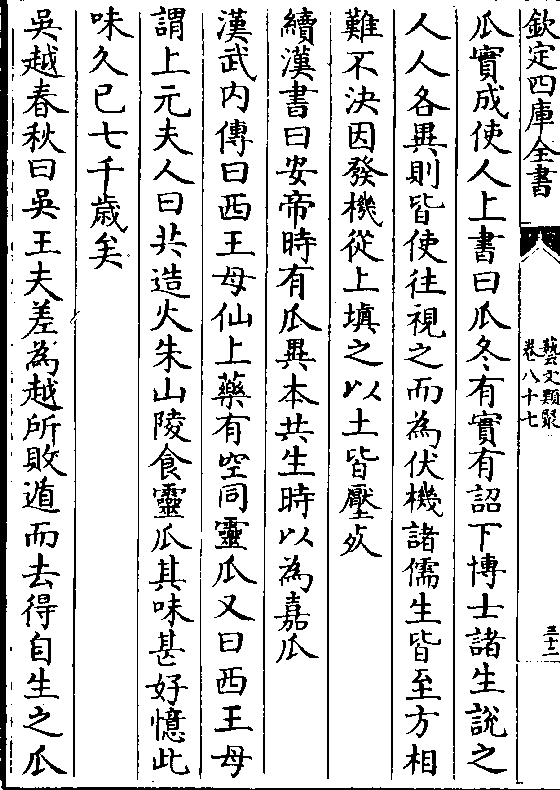 欽定四庫全書
藝文類聚
卷八十七
三十二
瓜實成使人上書曰瓜冬有實有詔下博士諸生說之
人人各異則皆使往視之而為伏機諸儒生皆至方相
難不決因發機從上填之以土皆壓死
續漢書曰安帝時有瓜異本共生時以為嘉瓜
漢武内傳曰西王母仙上藥有空同靈瓜又曰西王母
謂上元夫人曰共造火朱山陵食靈瓜其味甚好憶此
味久已七千歲矣
吳越春秋曰吳王夫差為越所敗遁而去得自生之瓜